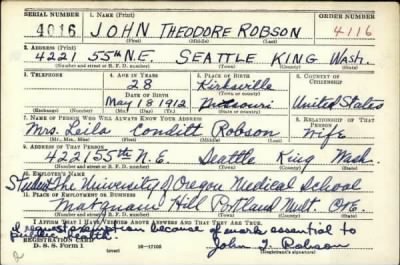 SERIAL NUMBER 1. NAME (Print) ORDER NUMBER
4016 JOHN THEODORE ROBSON 4116
(First) (Middle) (Last)
2. ADDRESS (Print)
4221 55th N.E. SEATTLE KING Wash.
(Number and street or R. F. D. number) (Town) (County) (State)
3. TELEPHONE 4. AGE IN YEARS 5. PLACE OF BIRTH 6. COUNTRY OF CITIZENSHIP
28 Kirksville
DATE OF BIRTH (Town or county)
May 18 1912 Missouri United States
(Exchange) (Number) (Mo.) (Day) (Yr.) (State or country)
7. NAME OF PERSON WHO WILL ALWAYS KNOW YOUR ADDRESS 8. RELATIONSHIP OF THAT PERSON
Mrs. Leila Conditt Robson wife
(Mr., Mrs., Miss) (First) (Middle) (Last)
9. ADDRESS OF THAT PERSON
4221 55th N.E. Seattle King Wash.
(Number and street or R. F. D. number) (Town) (County) (State)
10. EMPLOYER'S NAME
Student The University of Oregon Medical School
11. PLACE OF EMPLOYMENT OR BUSINESS
Marquam Hill Portland Mult. Ore.
(Number and street or R. F. D. number) (Town) (County) (State)
I AFFIRM THAT I HAVE VERIFIED ABOVE ANSWERS AND THAT THEY ARE TRUE.
I request exemption because of work essential to
public health.
REGISTRATION CARD
D. S. S. Form 1 16-17105 John T. Robson
(Registrant's signature)